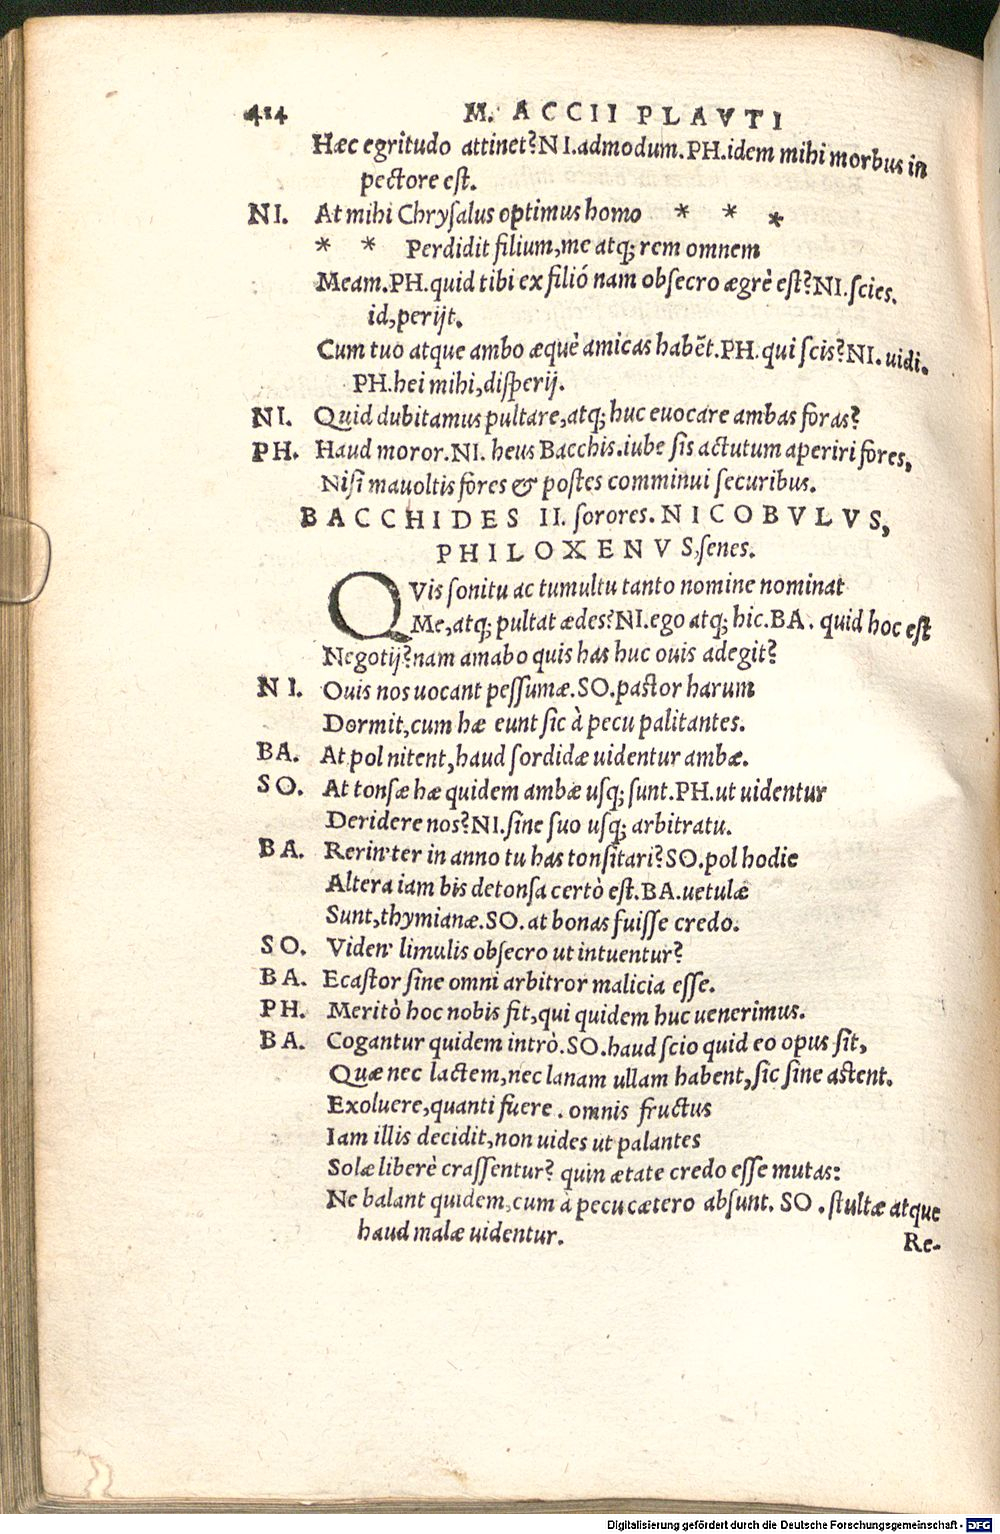 414 M. ACCII PLAVTI
Hæc egritudo attinet? NI. admodum. PH. idem mihi morbus in
pectore est.
NI. At mihi Chrysalus optimus homo * * *
* * Perdidit filium, me atq; rem omnem
Meam. PH. quid tibi ex filió nam obsecro ægrè est? NI. scies.
id, perijt.
Cum tuo atque ambo æquè amicas habēt. PH. qui scis? NI. uidi.
PH. hei mihi, disperij.
NI. Quid dubitamus pultare, atq; huc euocare ambas foras?
PH. Haud moror. NI. heus Bacchis. iube sis actutum aperiri fores,
Nisi mauoltis fores & postes comminui securibus.
BACCHIDES II. sorores. NICOBVLVS,
PHILOXENVS, senes.
QVis sonitu ac tumultu tanto nomine nominat
Me, atq; pultat ædes? NI. ego atq; hic. BA. quid hoc est
Negotij? nam amabo quis has huc ouis adegit?
NI. Ouis nos uocant pessumæ. SO. pastor harum
Dormit, cum hæ eunt sic à pecu palitantes.
BA. At pol nitent, haud sordidæ uidentur ambæ.
SO. At tonsæ hæ quidem ambæ usq; sunt. PH. ut uidentur
Deridere nos? NI. sine suo usq; arbitratu.
BA. Rerin' ter in anno tu has tonsitari? SO. pol hodie
Altera iam bis detonsa certò est. BA. uetulæ
Sunt, thymianæ. SO. at bonas fuisse credo.
SO. Viden' limulis obsecro ut intuentur?
BA. Ecastor sine omni arbitror malicia esse.
PH. Meritò hoc nobis fit, qui quidem huc uenerimus.
BA. Cogantur quidem intrò. SO. haud scio quid eo opus sit,
Quæ nec lactem, nec lanam ullam habent, sic sine astent.
Exoluere, quanti fuere. omnis fructus
Iam illis decidit, non uides ut palantes
Solæ liberè crassentur? quin ætate credo esse mutas:
Ne balant quidem, cum à pecu cætero absunt. SO. stultæ atque
haud malæ uidentur.
Re-
Digitalisierung gefördert durch die Deutsche Forschungsgemeinschaft - DFG